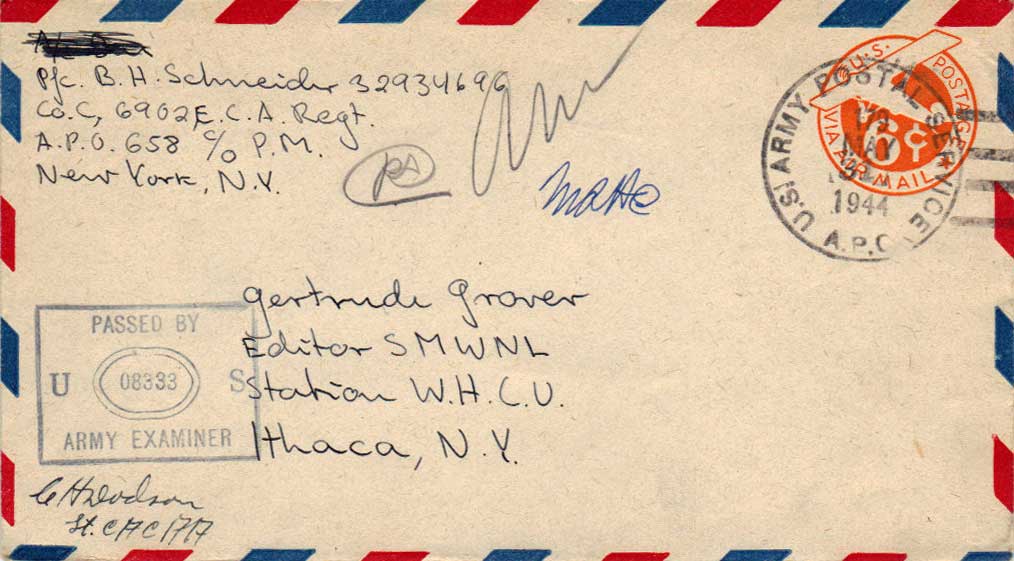 Pfc. B. H. Schneider 32934696
Co. C, 6902 E.C.A. Regt.
A.P.O. 658 c/o P.M.
New York, N.Y.
U.S. POSTAGE
6¢
VIA AIR MAIL
U.S. ARMY POSTAL SERVICE
A.P.O.
MAY
1944
Gertrude Grover
Editor SMWNL
Station W.H.C.U.
Ithaca, N.Y.
PASSED BY
U 08333 S
ARMY EXAMINER
C H Dodson